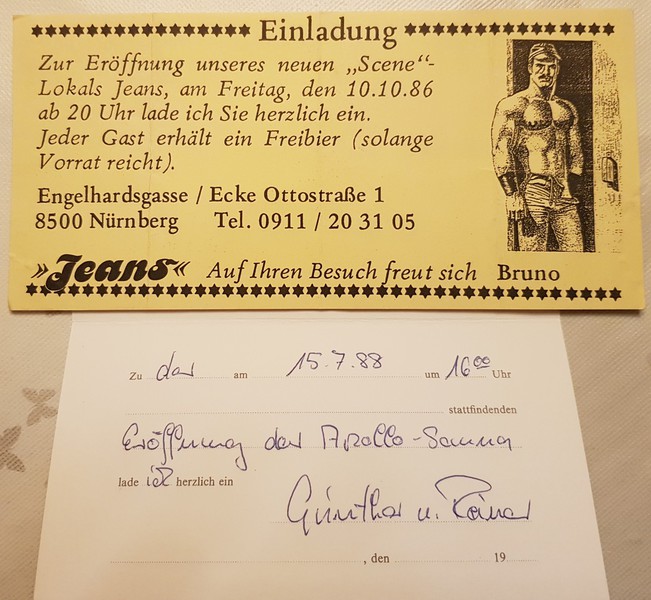 Einladung
Zur Eröffnung unseres neuen „Scene“-
Lokals Jeans, am Freitag, den 10.10.86
ab 20 Uhr lade ich Sie herzlich ein.
Jeder Gast erhält ein Freibier (solange
Vorrat reicht).
Engelhardsgasse / Ecke Ottostraße 1
8500 Nürnberg Tel. 0911 / 20 31 05
»Jeans« Auf Ihren Besuch freut sich Bruno
Zu der am 15.7.88 um 16⁰⁰ Uhr
stattfindenden
Eröffnung der Apollo-Sauna
lade ich herzlich ein
Günther u. Rainer
, den 19